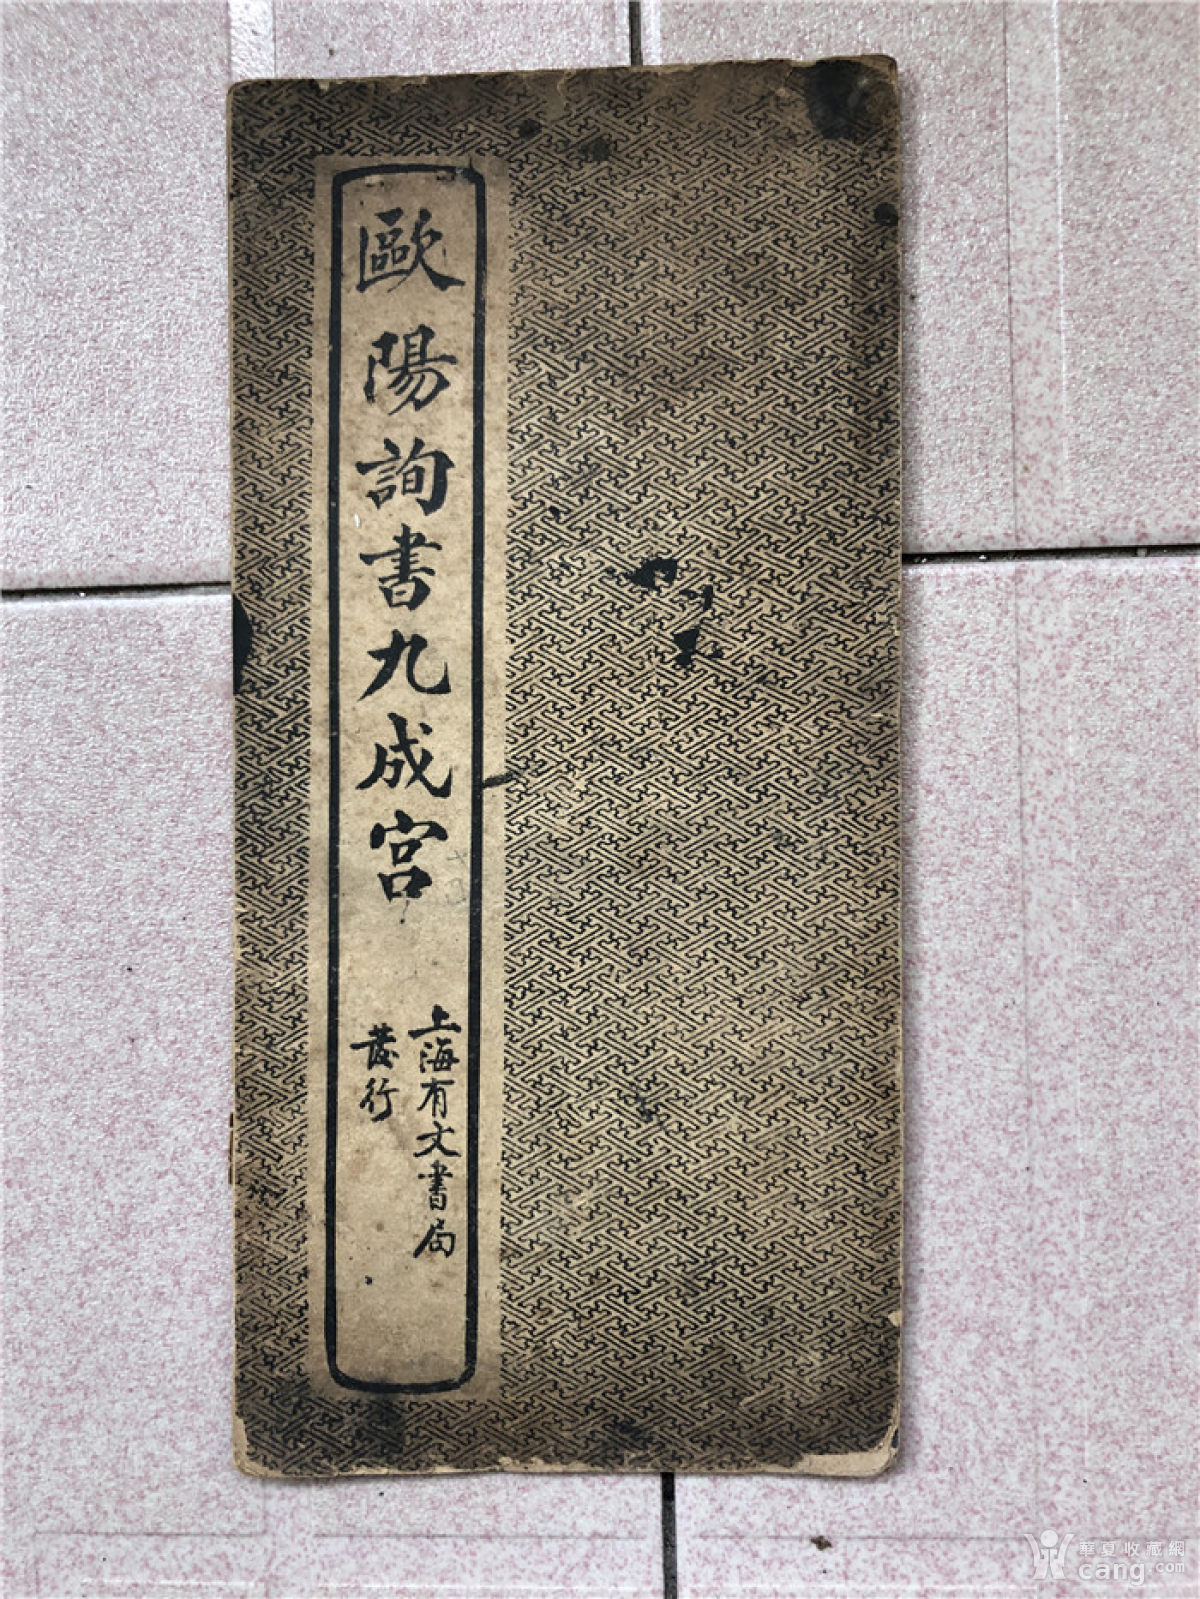 歐陽詢書九成宮
上海有文書局
發行
華夏收藏網
cang.com